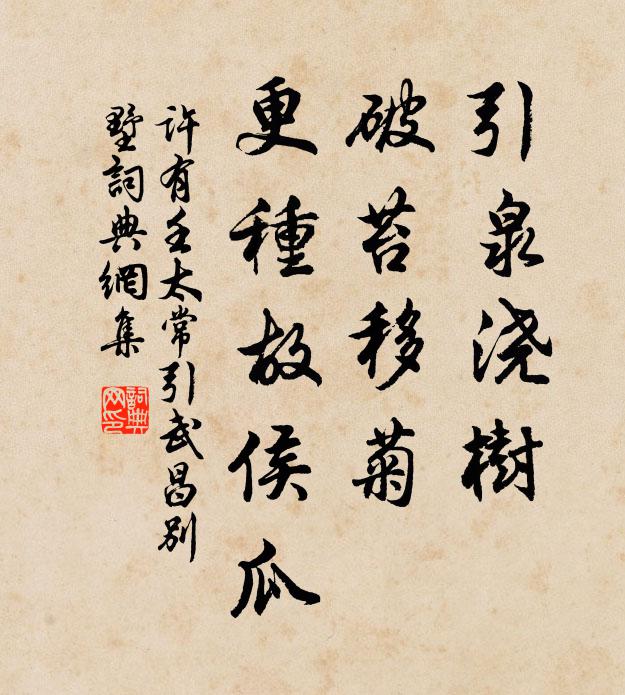 引泉浇樹
破苔移菊
更種故侯瓜
许有壬太常引武昌别
墅詞典網集
詞典网印